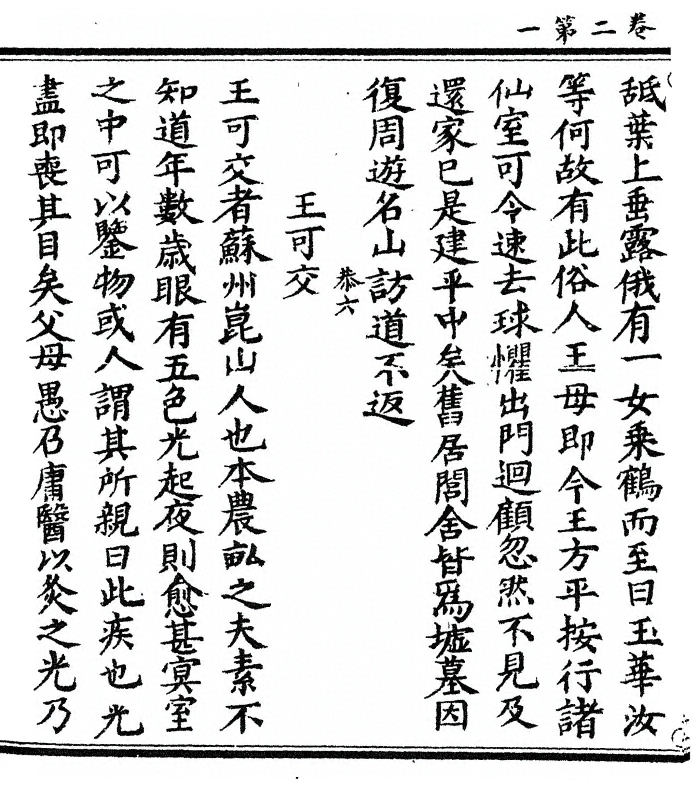 卷二第一
舐葉上垂露俄有一女乘鶴而至曰玉華汝
等何故有此俗人王母即令王方平按行諸
仙室可令速去球懼出門迴顧忽然不見及
還家已是建平中矣舊居閭舍皆爲墟墓因
復周遊名山訪道不返
恭六
王可交
王可交者蘇州崑山人也本農畝之夫素不
知道年數歲眼有五色光起夜則愈甚冥室
之中可以鑒物或人謂其所親曰此疾也光
盡即喪其目矣父母愚乃庸醫以灸之光乃